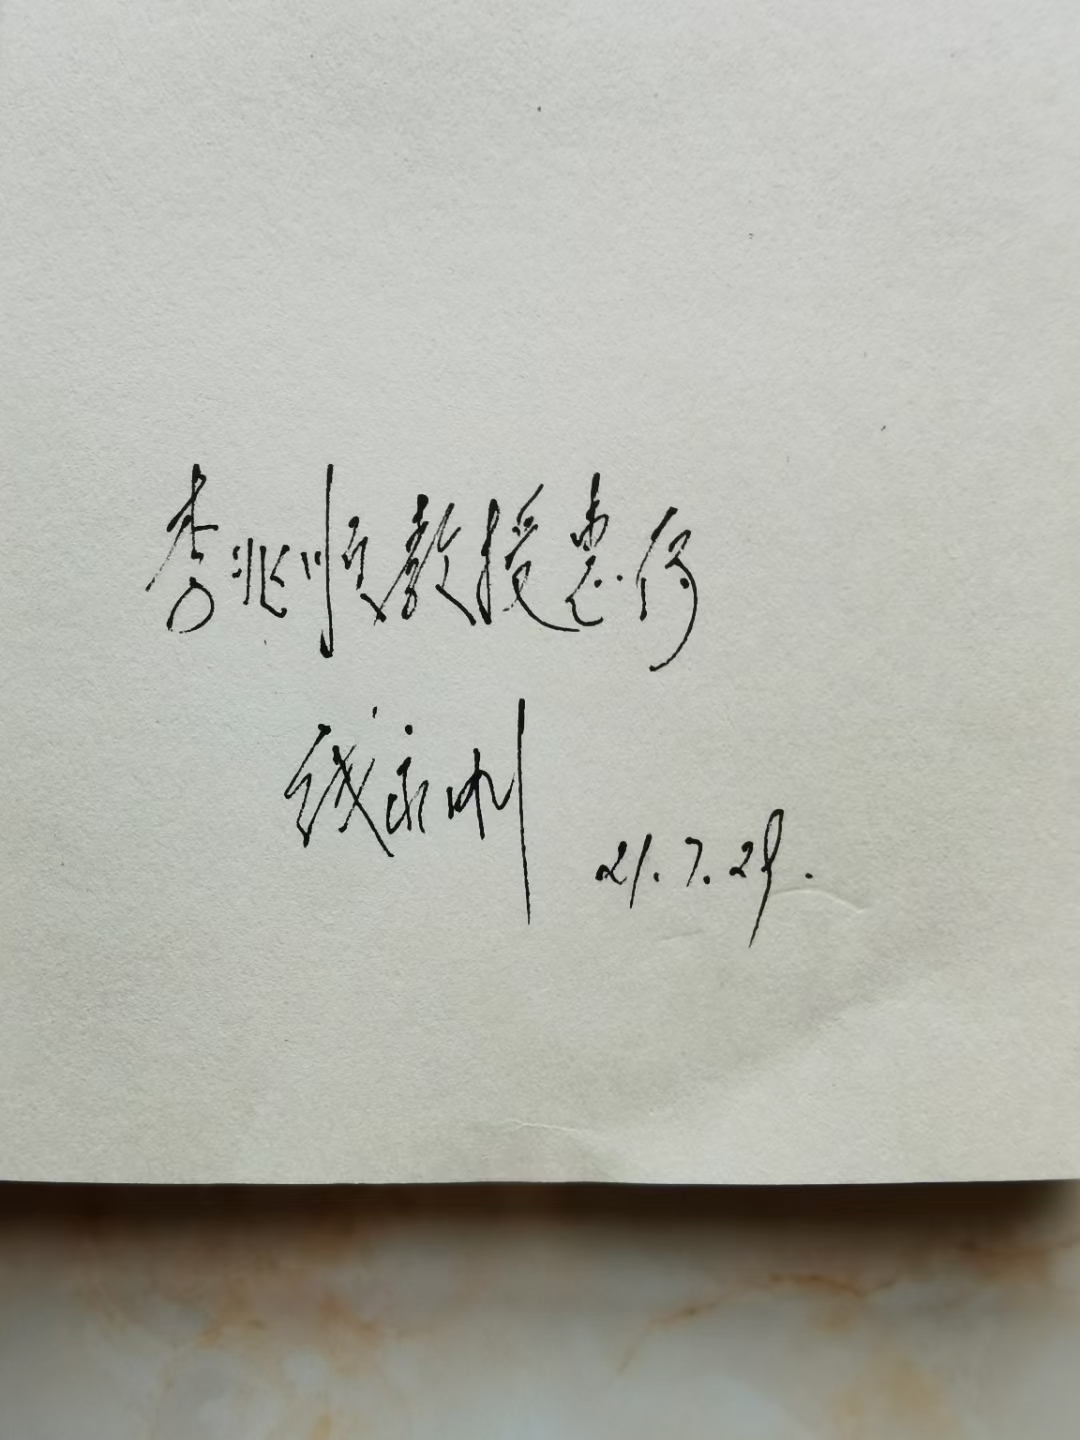 李兆顺教授惠存
钱永刚
21.7.29.